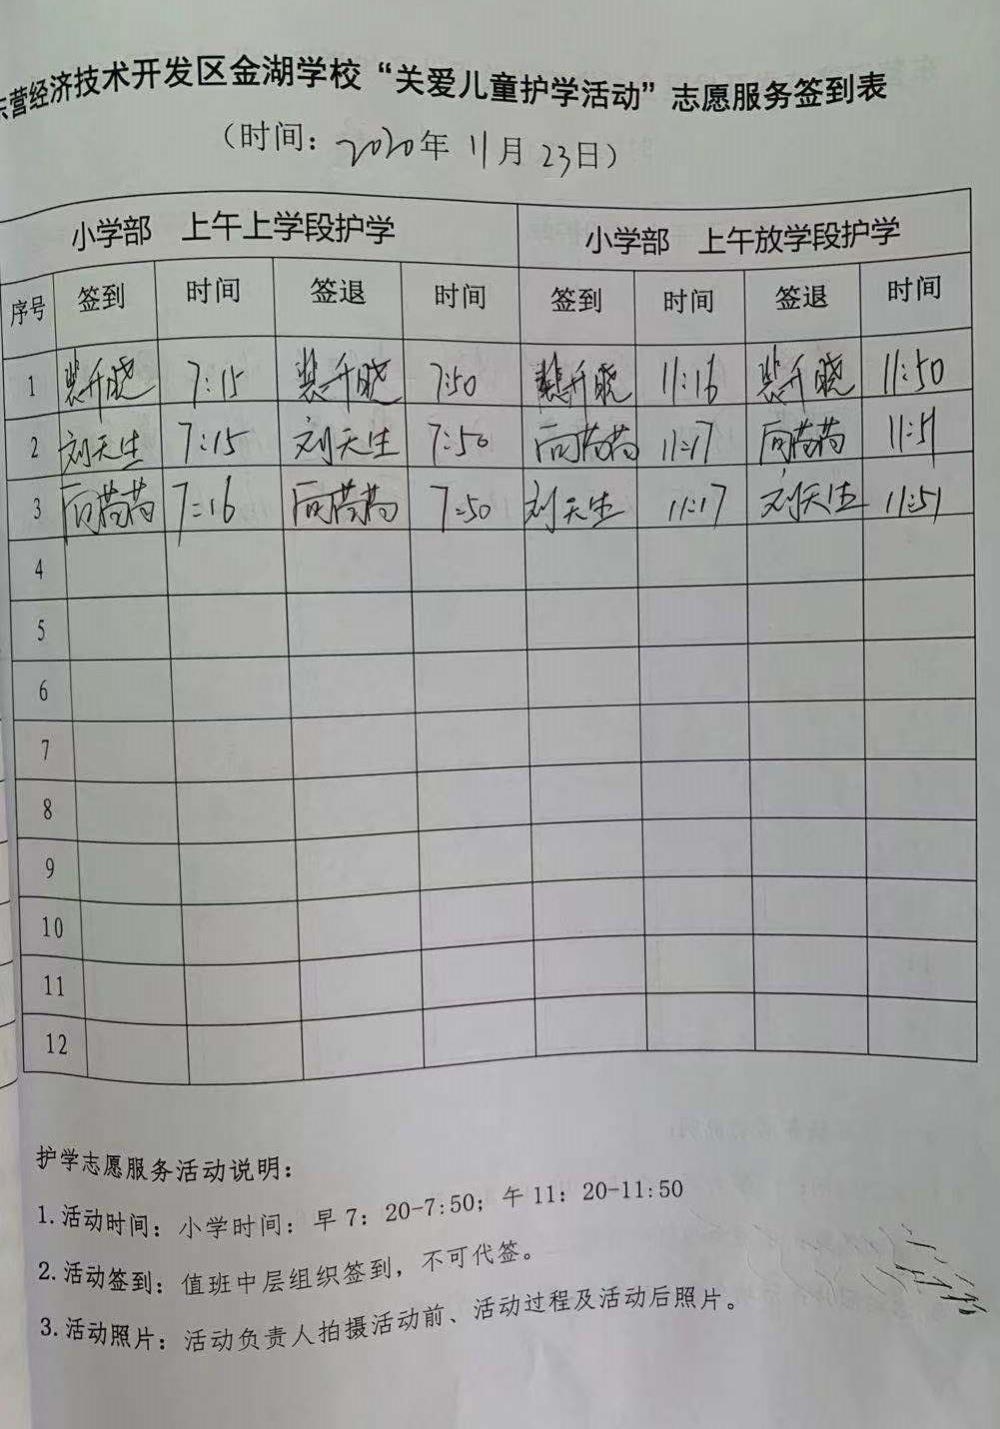 东营经济技术开发区金湖学校“关爱儿童护学活动”志愿服务签到表
（时间：2020年 11月 23日）
小学部 上午上学段护学 小学部 上午放学段护学
序号 签到 时间 签退 时间 签到 时间 签退 时间
1 裴升晓 7:15 裴升晓 7:50 裴升晓 11:16 裴升晓 11:50
2 刘天生 7:15 刘天生 7:50 11:17 11:51
3 7:16 7:50 刘天生 11:17 刘天生 11:51
4
5
6
7
8
9
10
11
12
护学志愿服务活动说明：
1.活动时间：小学时间：早7：20-7:50；午11：20-11:50
2.活动签到：值班中层组织签到，不可代签。
3.活动照片：活动负责人拍摄活动前、活动过程及活动后照片。